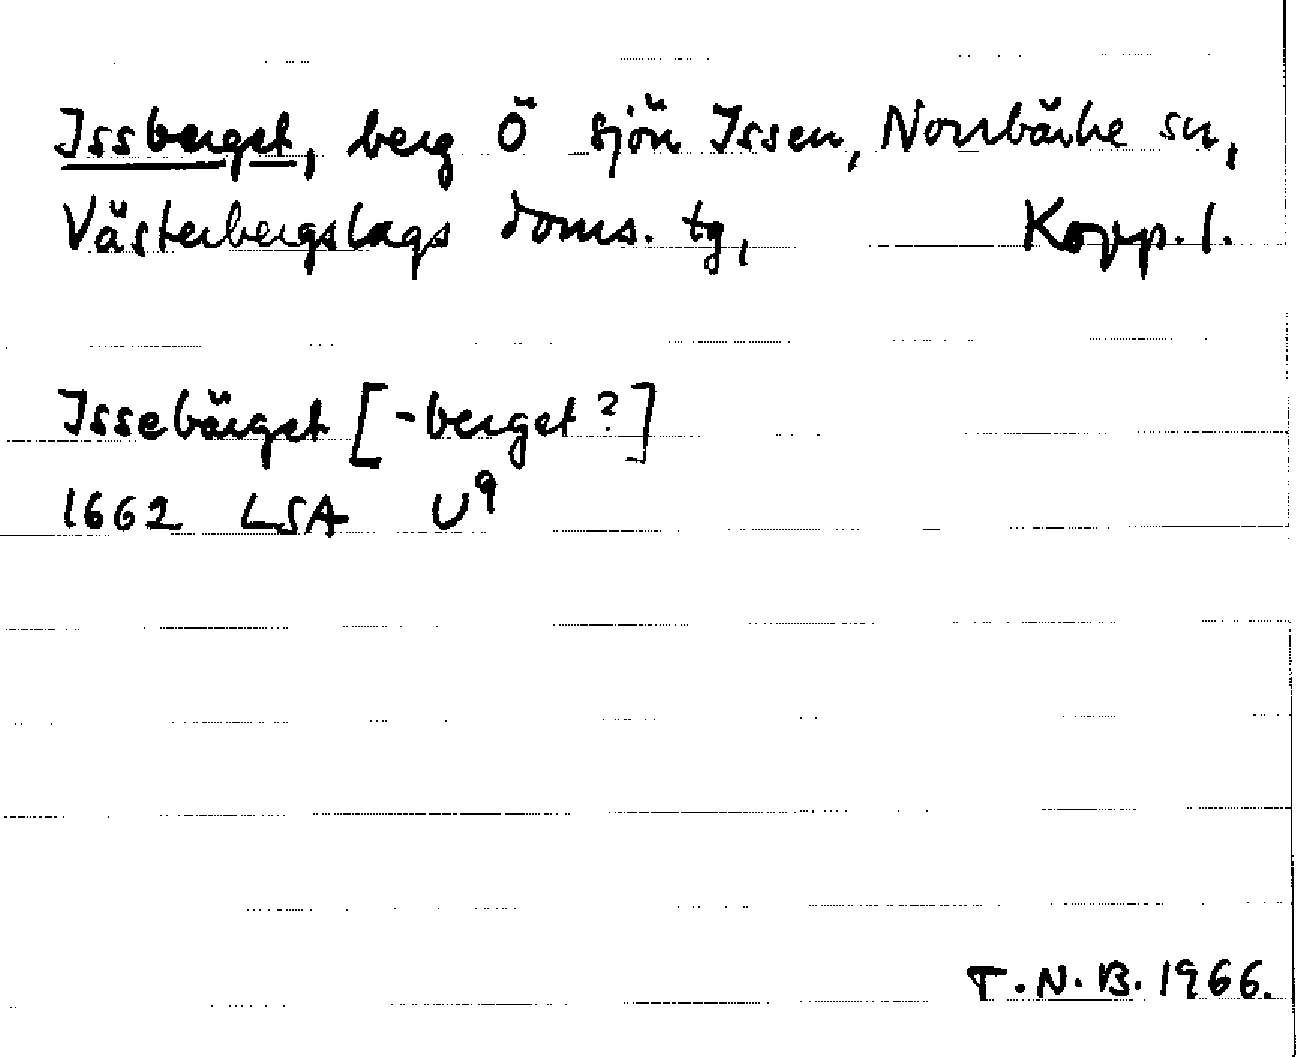 Issberget, berg Ö sjön Issen, Norrbärke sn,
Västerbergslags doms. tg, Kopp. l.
Issebärget [-berget?]
1662 LSA U⁹
T.N.B. 1966.